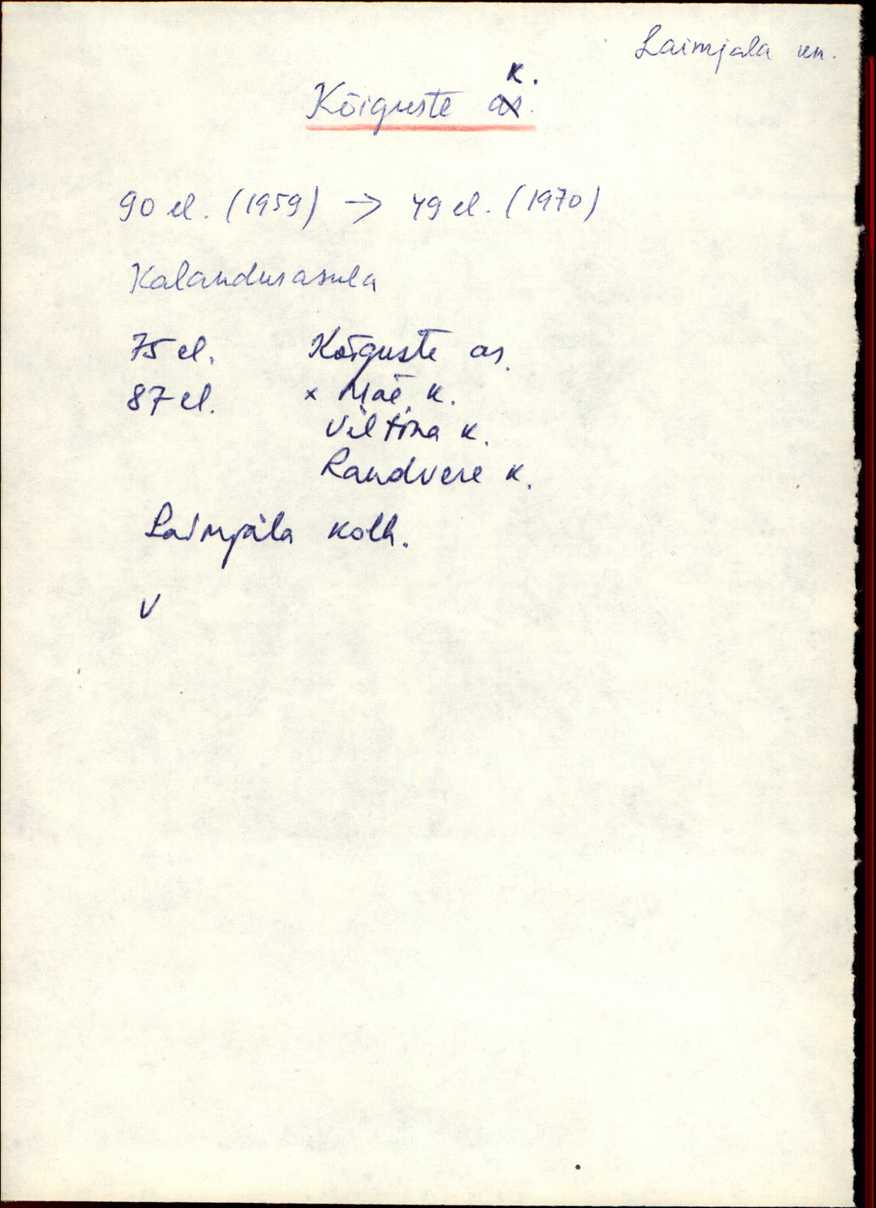 Laimjala kn.
k.
Kõiguste as.
90 el. (1959) → 49 el. (1970)
Kalandusasula
75 el. Kõiguste as.
87 el. x Mäe k.
Viltina k.
Randvere k.
Laimjala kolh.
V